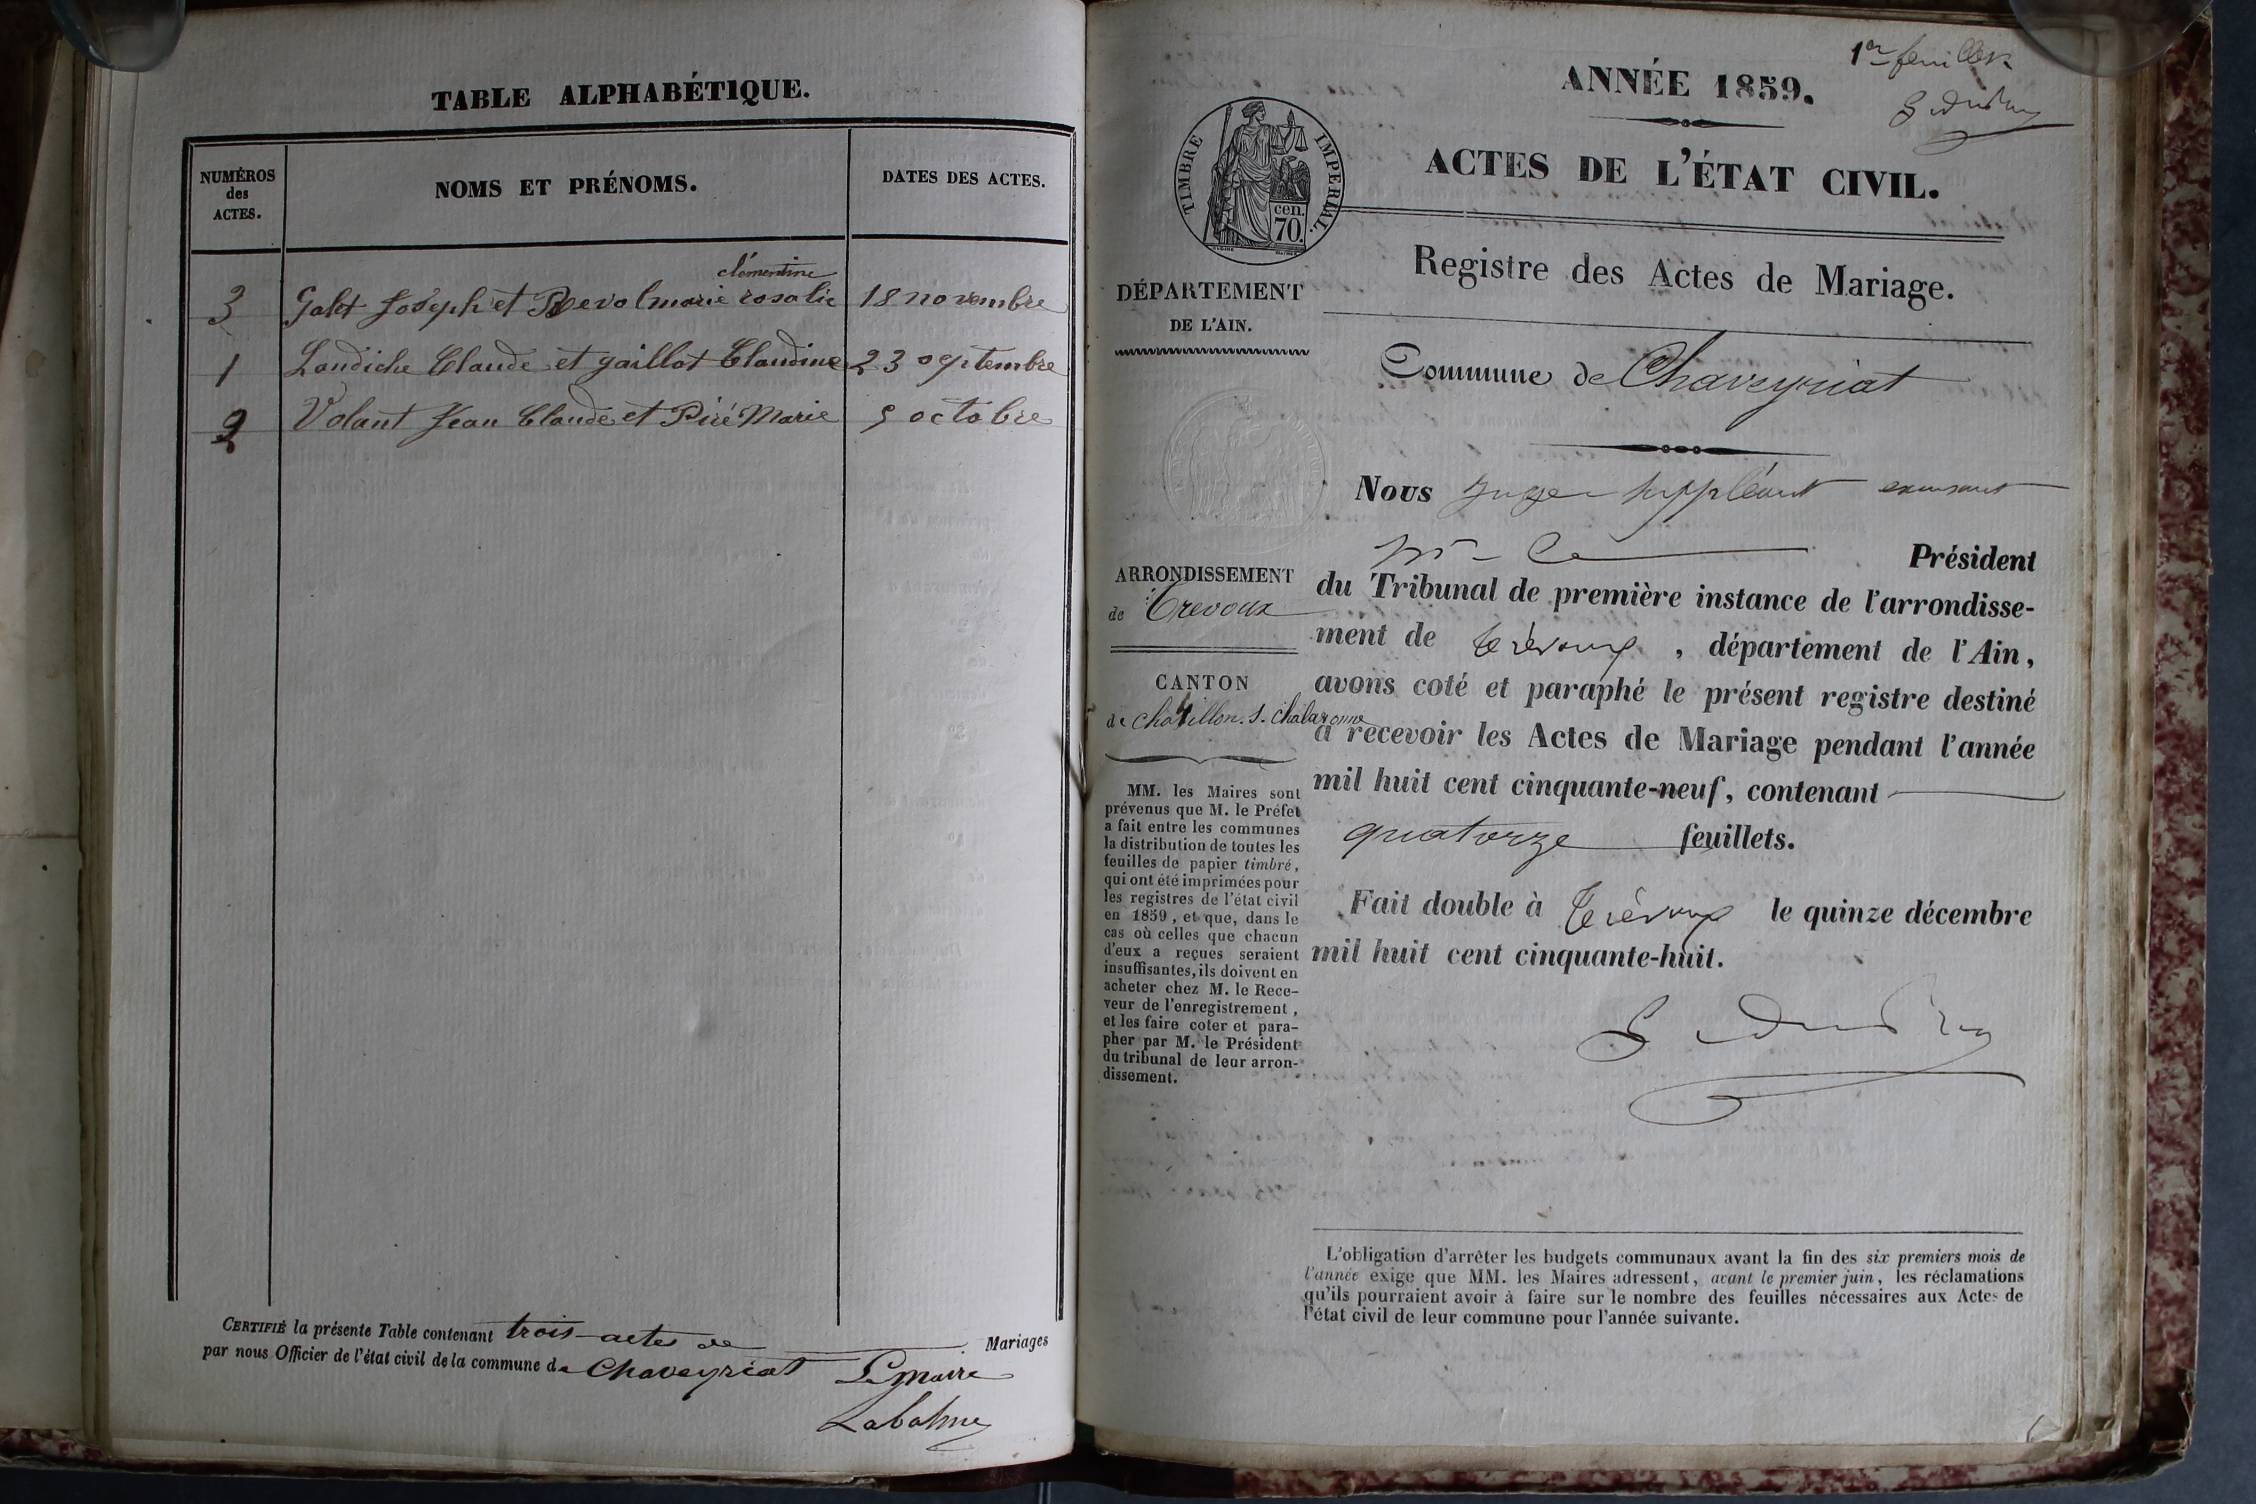 TABLE ALPHABÉTIQUE.
NUMÉROS
des
ACTES.
NOMS ET PRÉNOMS.
DATES DES ACTES.
clémentine
3 Galet Joseph et Revol marie rosalie 18 novembre
1 Landiche Claude et gaillot Claudine 23 septembre
2 Volant Jean Claude et Piré Marie 5 octobre
CERTIFIÉ la présente Table contenant trois actes de Mariages
par nous Officier de l'état civil de la commune de Chaveyriat Le Maire
1er feuillet
ANNÉE 1859.
ACTES DE L'ÉTAT CIVIL.
TIMBRE IMPÉRIAL
cen.
70.
Registre des Actes de Mariage.
DÉPARTEMENT
DE L'AIN.
Commune de Chaveyriat
ARRONDISSEMENT
de Trevoux
CANTON
de Châtillon. s. Chalaronne
MM. les Maires sont
prévenus que M. le Préfet
a fait entre les communes
la distribution de toutes les
feuilles de papier timbré,
qui ont été imprimées pour
les registres de l'état civil
en 1859, et que, dans le
cas où celles que chacun
d'eux a reçues seraient
insuffisantes, ils doivent en
acheter chez M. le Rece-
veur de l'enregistrement,
et les faire coter et para-
pher par M. le Président
du tribunal de leur arron-
dissement.
Nous juge suppléant
Mr le Président
du Tribunal de première instance de l'arrondisse-
ment de trévoux, département de l'Ain,
avons coté et paraphé le présent registre destiné
à recevoir les Actes de Mariage pendant l'année
mil huit cent cinquante-neuf, contenant
quatorze feuillets.
Fait double à trévoux le quinze décembre
mil huit cent cinquante-huit.
L'obligation d'arrêter les budgets communaux avant la fin des six premiers mois de
l'année exige que MM. les Maires adressent, avant le premier juin, les réclamations
qu'ils pourraient avoir à faire sur le nombre des feuilles nécessaires aux Actes de
l'état civil de leur commune pour l'année suivante.